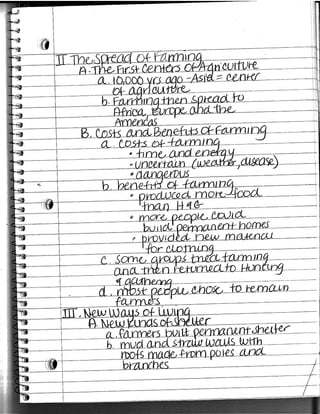 II The Spread of Farming
A. The First Centers of Agriculture
a. 10,000 yrs. ago - Asia = center
of agriculture
b. Farming then spread to
Africa, Europe and the
Americas
B. Costs and Benefits of Farming
a. costs of farming
• time and energy
• uncertain (weather, disease)
• dangerous
b. benefits of farming
• produced more food
than H+G
• more people could
build permanent homes
• provided new material
for clothing
c. some groups tried farming
and then returned to hunting
& gathering
d. most people chose to remain
farmers
III. New Ways of Living
A. New Kinds of Shelter
a. farmers built permanent shelter
b. mud and straw walls with
roofs made from poles and
branches